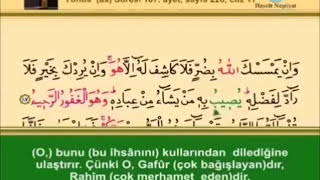 Yunus (as) Suresi 107. ayet, sayfa 220, cüz 11
Hayrât Neşriyat
وَاِنْ يَمْسَسْكَ اللّٰهُ بِضُرٍّ فَلَا كَاشِفَ لَهُٓ اِلَّا هُوَۚ وَاِنْ يُرِدْكَ بِخَيْرٍ فَلَا
رَٓادَّ لِفَضْلِه۪ۜ يُص۪يبُ بِه۪ مَنْ يَشَٓاءُ مِنْ عِبَادِه۪ۜ وَهُوَ الْغَفُورُ الرَّح۪يمُ
(O,) bunu (bu ihsânını) kullarından dilediğine
ulaştırır. Çünki O, Gafûr (çok bağışlayan)dır,
Rahîm (çok merhamet eden)dir.